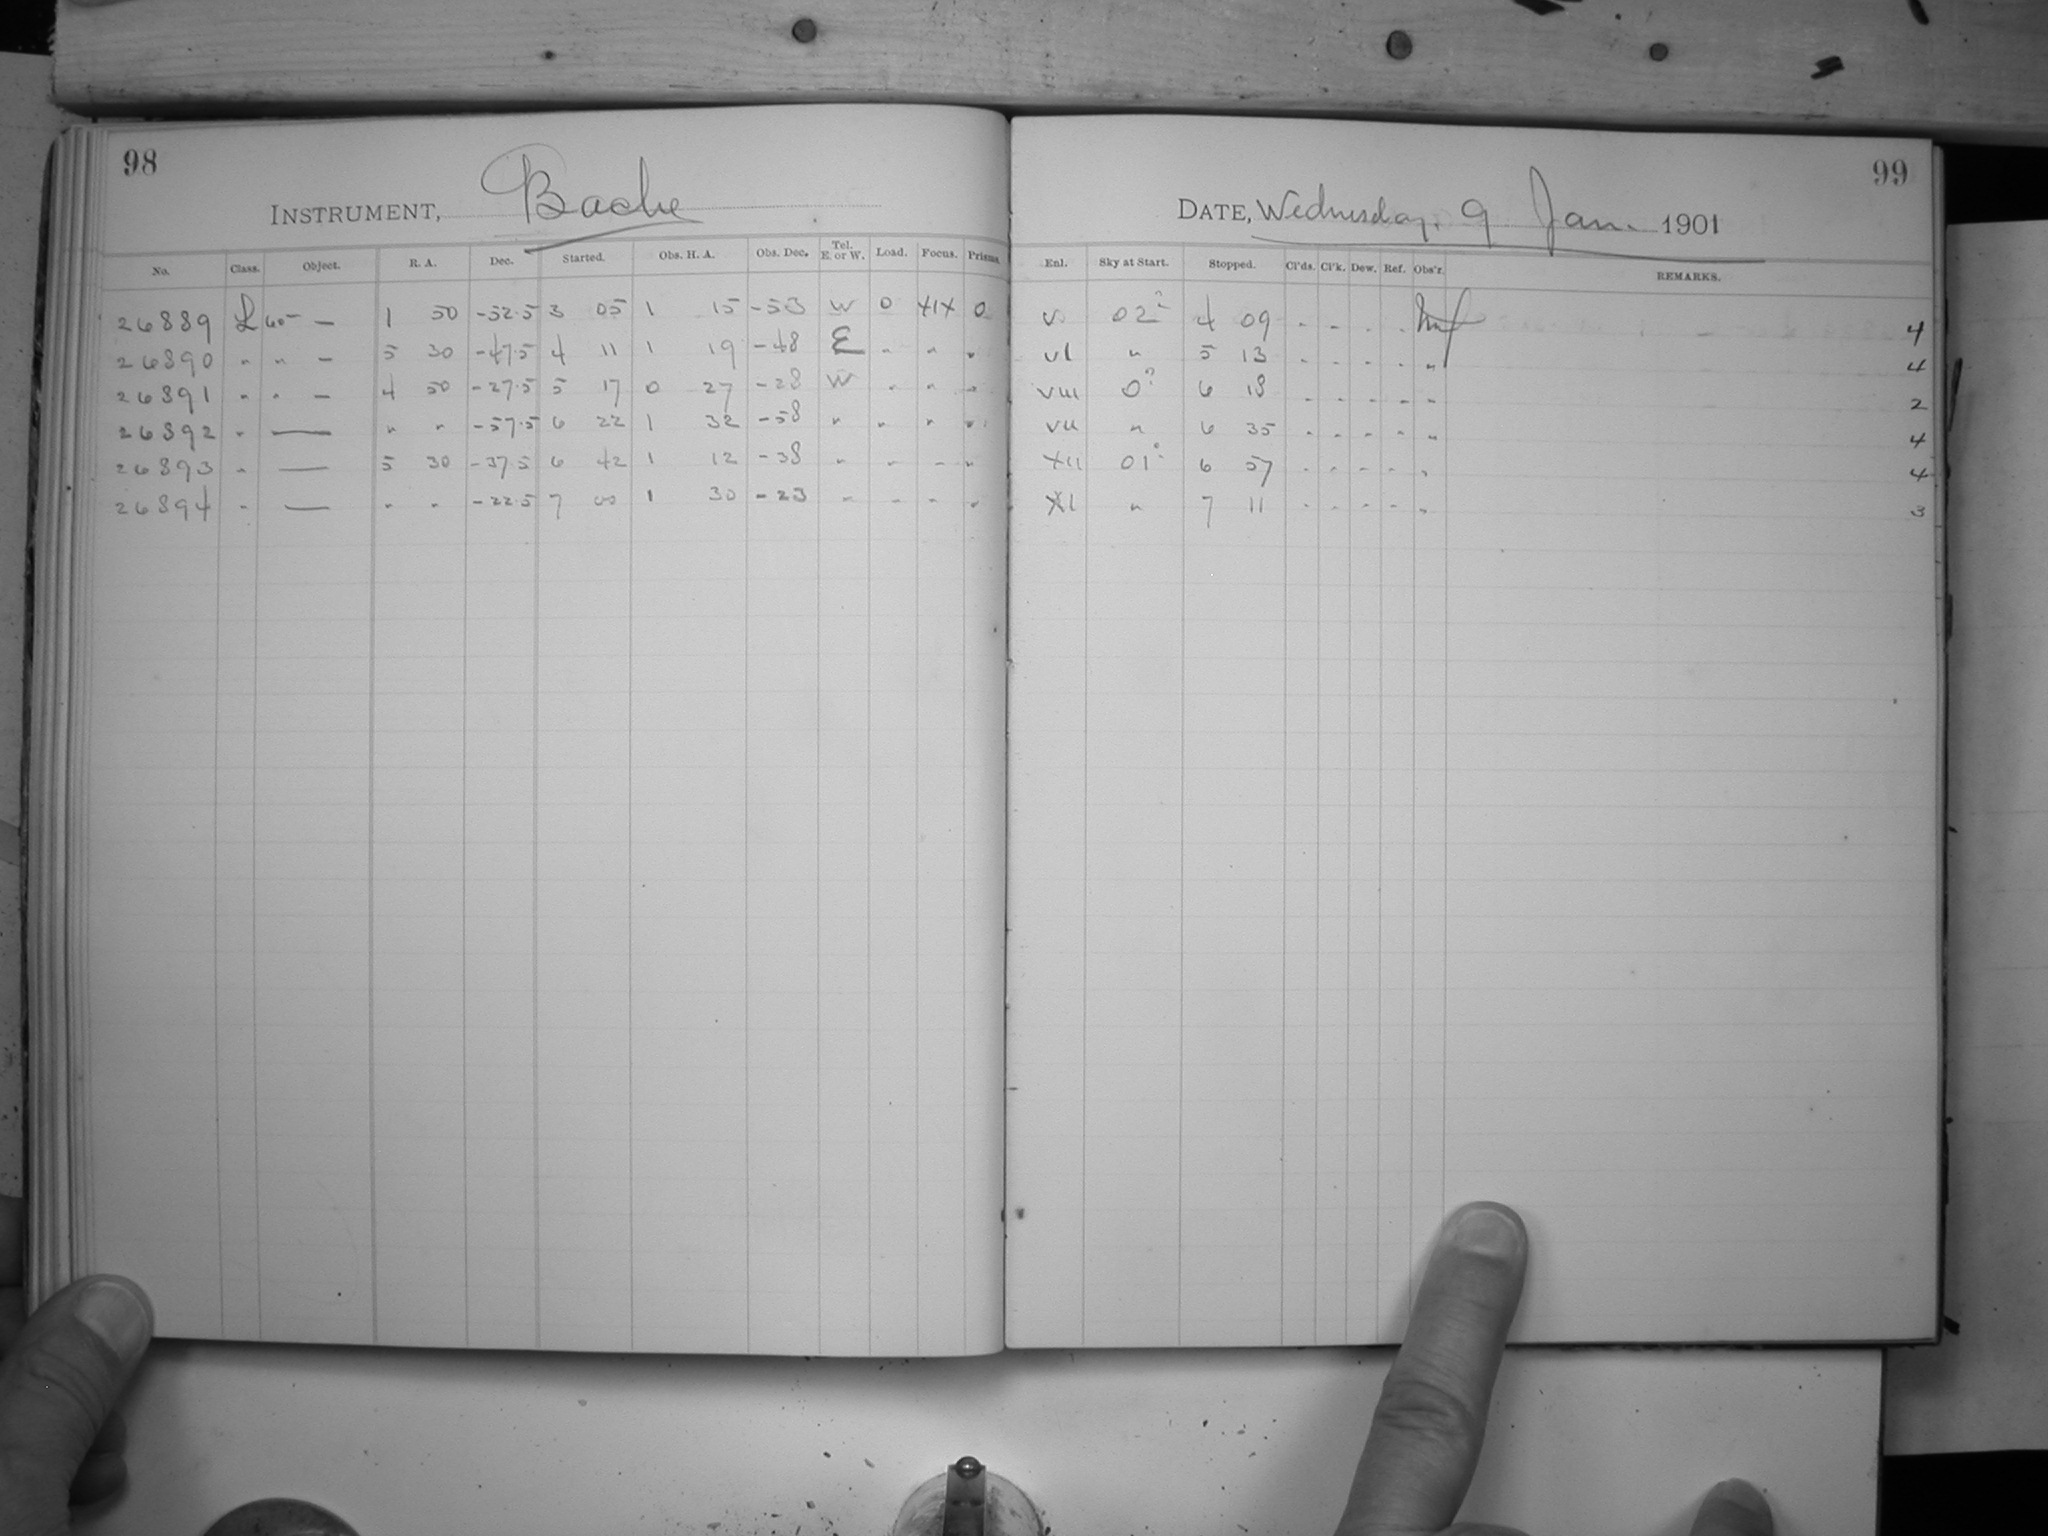 98
INSTRUMENT, Bache
No. Class. Object. R. A. Dec. Started. Obs. H. A. Obs. Dec. Tel. E. or W. Load. Focus. Prisms.
26889 L 60 — 1 50 -52.5 3 05 1 15 -53 W 0 XIX 0
26890 " " — 5 30 -47.5 4 11 1 19 -48 E " " "
26891 " " — 4 50 -27.5 5 17 0 27 -28 W " " "
26892 " — " " -57.5 6 22 1 32 -58 " " " "
26893 " — 5 30 -37.5 6 42 1 12 -38 " " " "
26894 " — " " -22.5 7 00 1 30 -23 " " " "
99
DATE, Wednesday, 9 Jan. 1901
Enl. Sky at Start. Stopped. Cl'ds. Cl'k. Dew. Ref. Obs'r. REMARKS.
V 02? 4 09 - - - - 4
VI " 5 13 - - - - " 4
VIII 0? 6 18 - - - - " 2
VII " 6 35 - - - - " 4
XII 01? 6 57 - - - - " 4
XI " 7 11 - - - - " 3